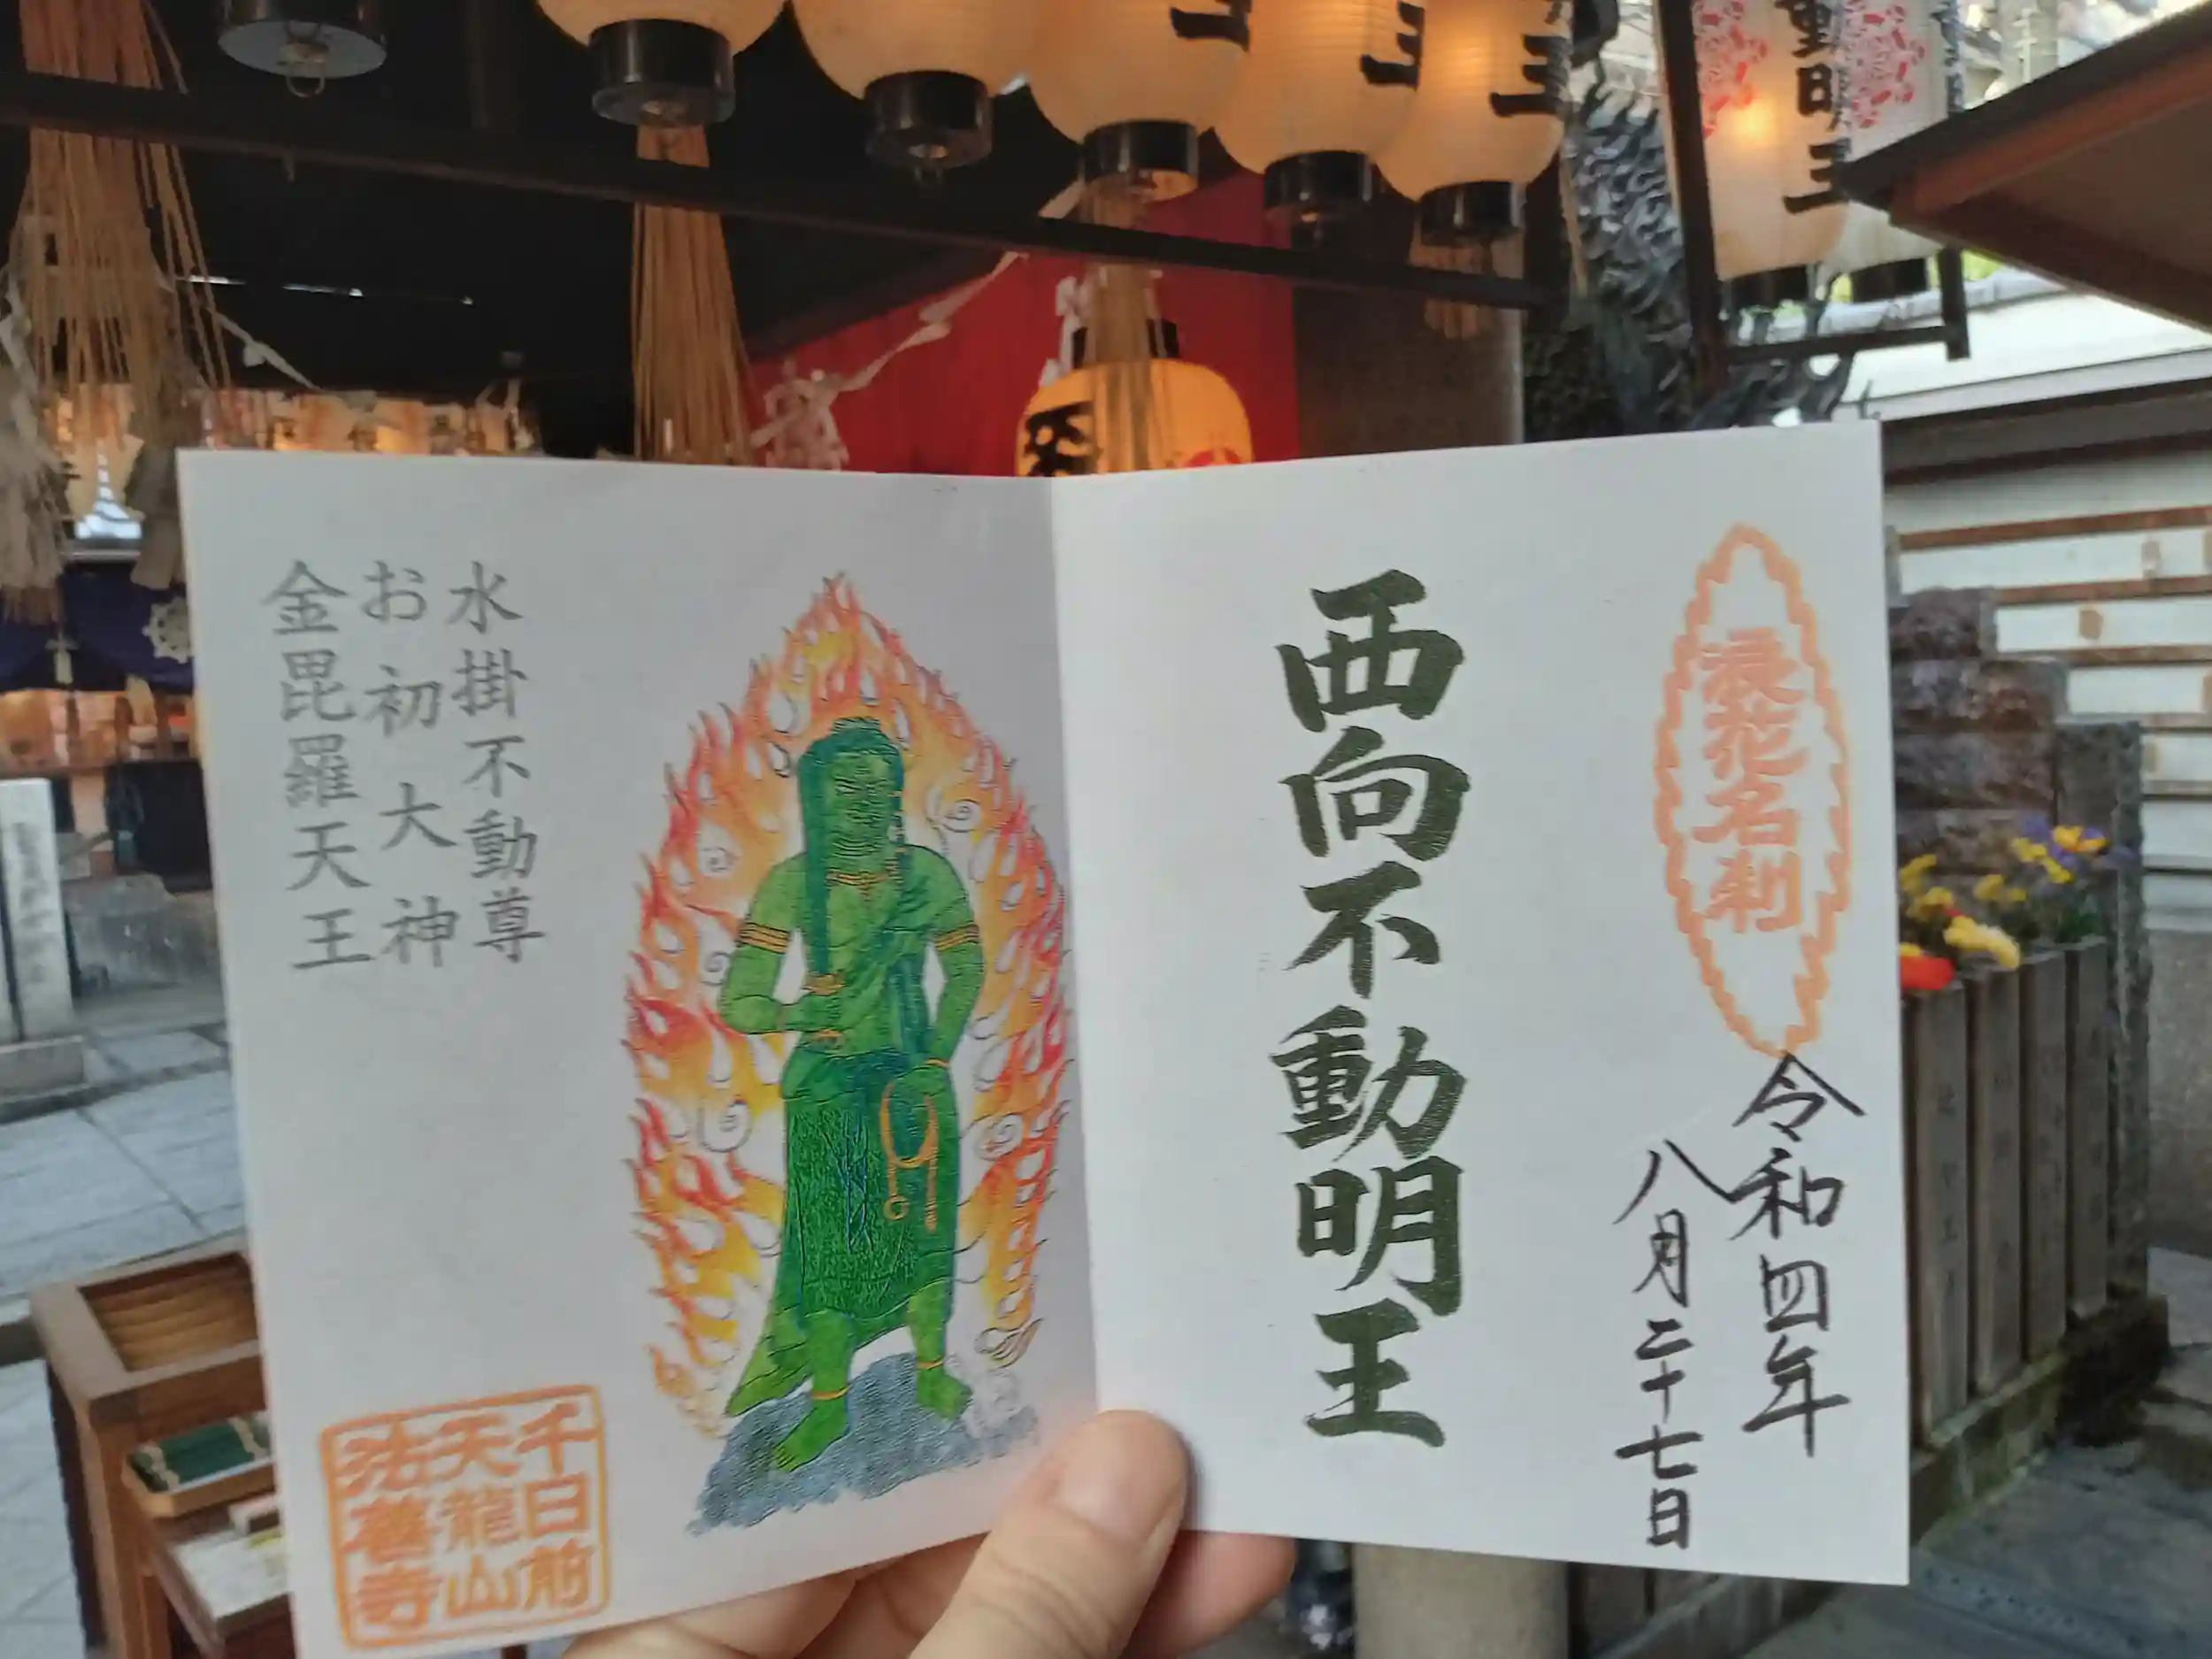 浪花名刹
令和四年
八月二十七日
西向不動明王
水掛不動尊
お初大神
金毘羅天王
千日前
天龍山
法善寺
動明王
王
王
王
不